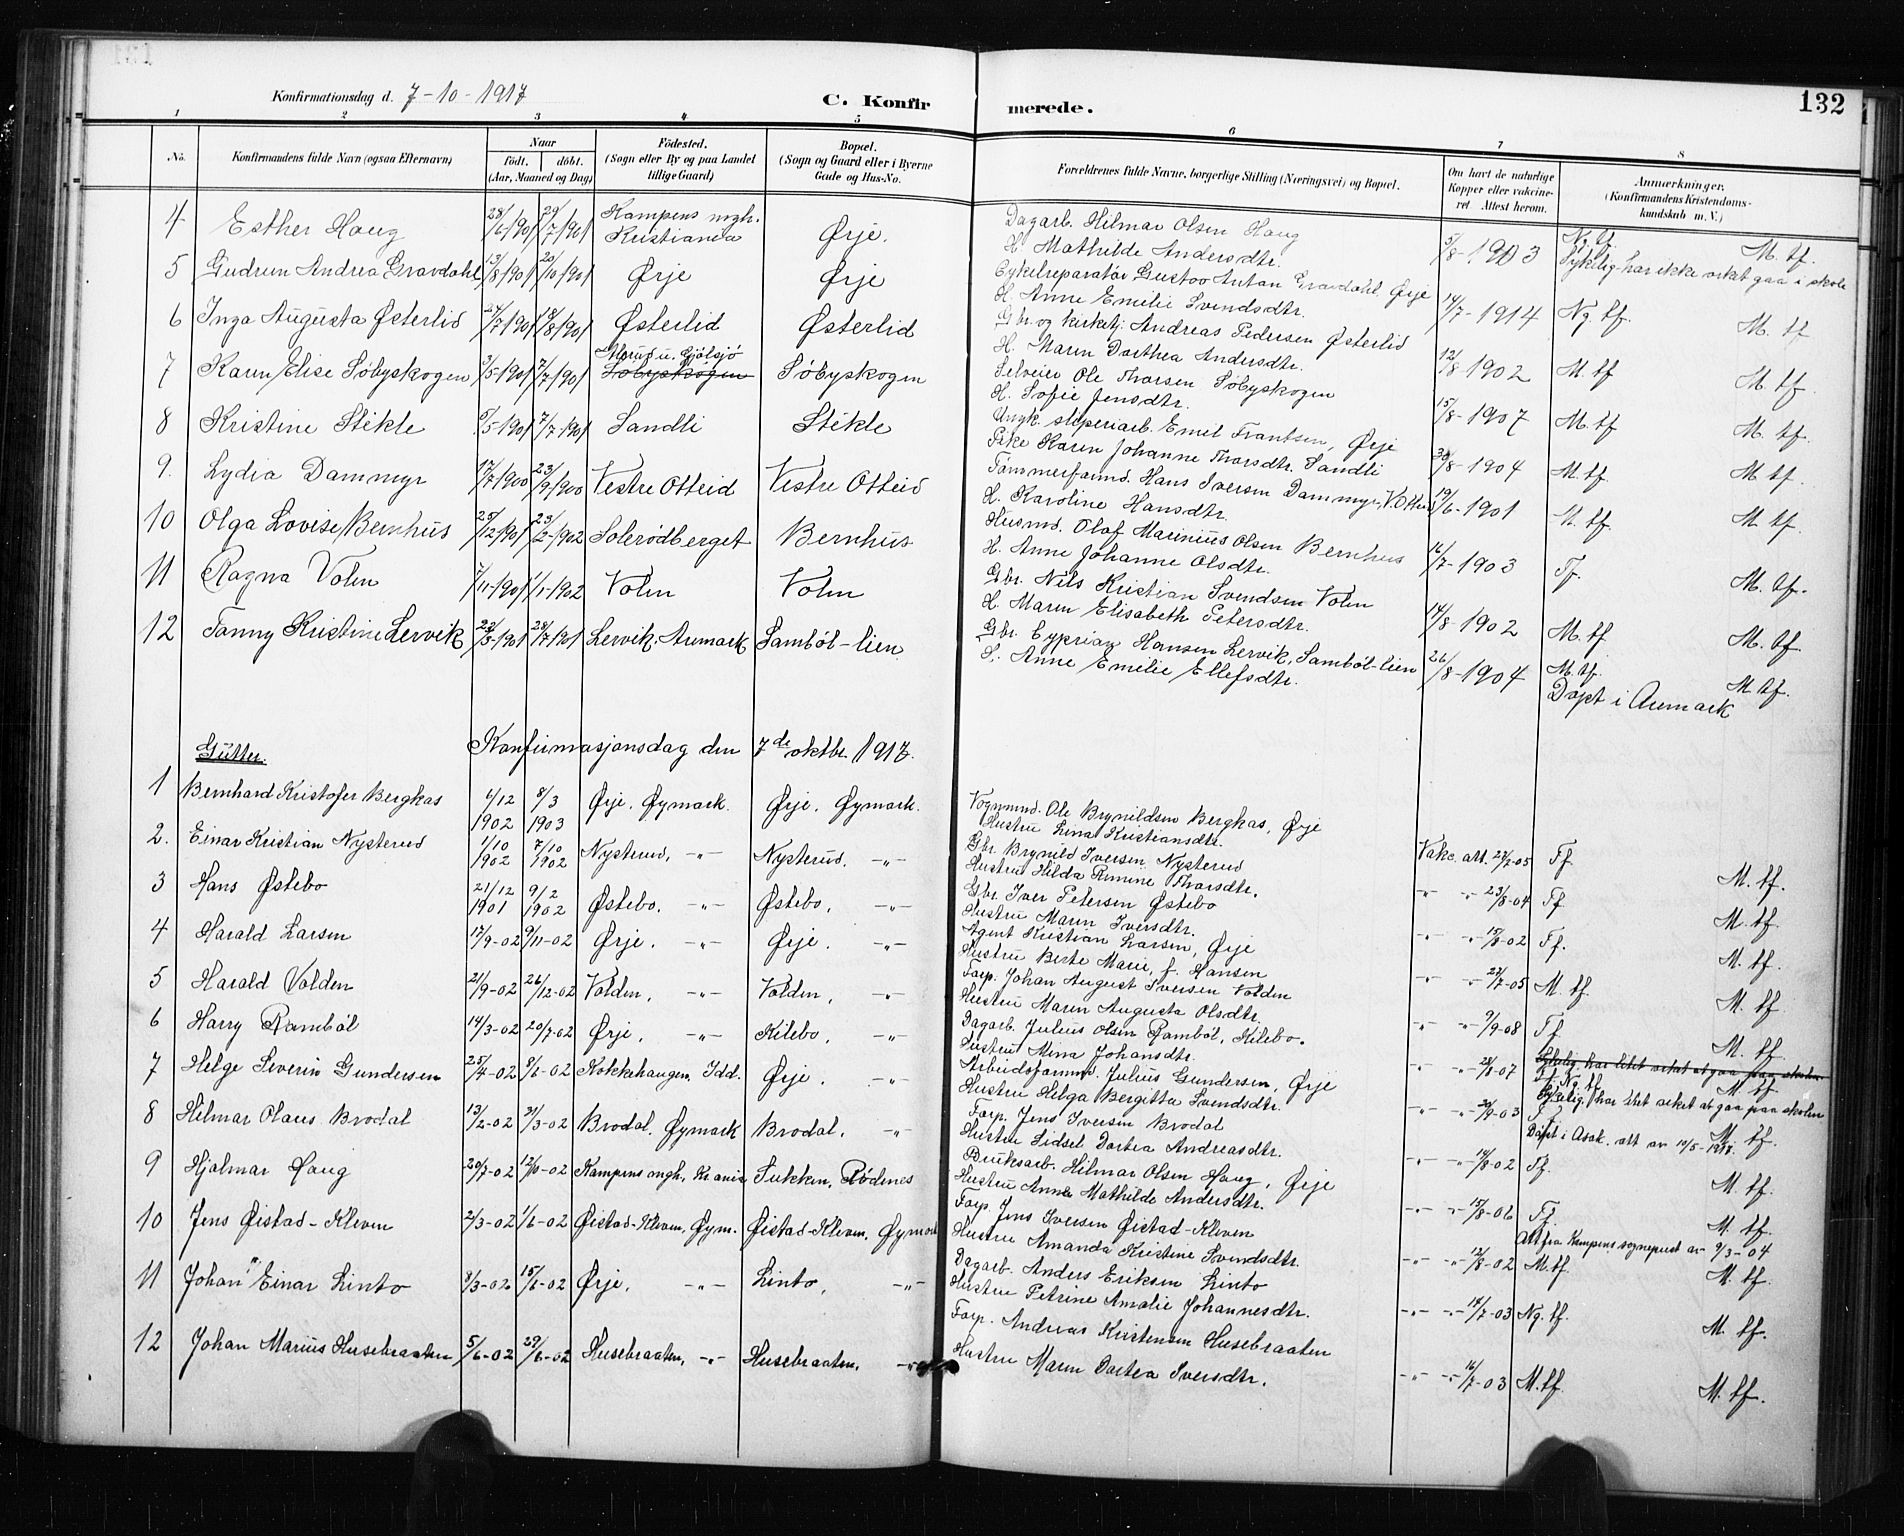 Konfirmationsdag d. 7-10-1917
C. Konfirmerede.
132
1 2 3 4 5 6 7 8
No.
Konfirmandens fulde Navn (ogsaa Efternavn)
Naar
født. døbt.
(Aar, Maaned og Dag)
Fødested.
(Sogn eller By og paa Landet
tillige Gaard)
Bopæl.
(Sogn og Gaard eller i Byerne
Gade og Hus-No.
Forældrenes fulde Navne, borgerlige Stilling (Næringsvei) og Bopæl.
Om havt de naturlige
Kopper eller vakcine-
ret Attest herom.
Anmærkninger.
(Konfirmandens Kristendoms-
kundskab m. V.)
4 Esther Haug 28/6-1901 29/7-1901 Kampens mgh. Kristiania Ørje. Dagarb. Hilmar Olsen Haug
H. Mathilde Andersdtr. 5/8-1903 Ng. tf. M. tf.
5 Gudrun Andrea Gravdahl 13/8-1901 20/10-1901 Ørje Ørje Cykelreparatør Gustav Antan Gravdahl, Ørje
H. Anne Emilie Svendsdtr. 14/7-1914 Sykelig-har ikke orket gaa i skole Ng. tf. M. tf
6 Inga Augusta Østerlid 24/7-1901 18/8-1901 Østerlid Østerlid Gbr. og kirketj. Andreas Pedersen Østerlid
H. Maren Dorthea Andersdtr. 12/8-1902 M. tf M. tf.
7 Karen Elise Söbyskogen 3/5-1901 7/7-1901 Morud u. Gjölsjö Söbyskogen Söbyskogen Selveier Ole Thorsen Söbyskogen
H. Sofie Jensdtr. 15/8-1907 M. tf M. tf.
8 Kristine Stikle /5-1901 7/7-1901 Sandli Stikle Ungk. sliperiarb. Emil Frantsen, Ørje
Pike Karen Johanne Thorsdtr. Sandli 30/8-1904 M. tf. M. tf.
9. Lydia Dammyr 17/7-1900 23/9-1900 Vestre Otteid Vestre Otteid Tömmerformd. Hans Iversen Dammyr, V. Otteid
H. Karoline Hansdtr. 19/6-1901 M. tf. M. tf.
10 Olga Lovise Bernhus 25/12-1901 23/2-1902 Solerödberget Bernhus Husmd. Olaf Marinius Olsen Bernhus
H. Anne Johanne Olsdtr. 16/7-1903 Tf. M. tf.
11 Ragna Volen 7/11-1901 1/1-1902 Volen Volen Gbr. Nils Kristian Svendsen Volen
H. Maren Elisabeth Petersdtr. 14/8-1902 M. tf. M. tf.
12 Fanny Kristine Lervik 22/3-1901 28/7-1901 Lervik, Aremark Samböl-lien Gbr. Cyprian Hansen Lervik, Samböl-lien
H. Anne Emelie Ellefsdtr. 26/8-1904 M. tf. M. tf.
Döpt i Aremark
Gutter. Konfirmasjonsdag den 7de oktbr. 1917.
1 Bernhard Kristofer Bergkas 6/12 1902 8/3 1903 Ørje, Øymark. Ørje, Øymark. Vognmnd. Ole Brynildsen Bergkas, Ørje
Hustru Lina Kristiansdtr. Vakc. att. 27/7-05 Tf. M. tf.
2. Einar Kristian Nysterud 1/10 1902 7/10 1902 Nysterud, -"- Nysterud, -"- Gbr. Brynild Iversen Nysterud
Hustru Hilda Thorsdtr. " " 23/8-04 Tf M. tf.
3 Hans Østebo 21/12 1901 9/2 1902 Østebo, -"- Østebo, -"- Gbr. Iver Petersen Østebo
Hustru Maren Iversdtr. " " 15/8-02 Tf. M. tf.
4 Harald Larsen 17/9-02 9/11-02 Ørje, -"- Ørje, -"- Agent Kristian Larsen, Ørje
Hustru Berte Marie, f. Hansen " " 27/7-05 M. tf. M. tf.
5 Harald Volden 21/9-02 26/12-02 Volden, -"- Volden, -"- Forp. Johan August Iversen Volden
Hustru Maren Augusta Olsdtr. " " 9/9-08 Tf. M. tf.
6 Harry Ramböl 14/3-02 20/7-02 Ørje, -"- Kilebo, -"- Dagarb. Julius Olsen Ramböl, Kilebo.
Hustru Mina Johansdtr. " " 28/8-07 Sykelig, har litet orket at gaa paa skolen Tf. M. tf.
7 Helge Severin Gundersen 25/4-02 8/6-02 Kokkehaugen, Idd. Ørje, -"- Arbeidsformd. Julius Gundersen, Ørje
Hustru Helga Bergitta Svendsdtr. " " /9-03 Ng. tf. Sykelig, har litet orket at gaa paa skolen
8 Hilmar Olaus Brodal 13/2-02 31/3-02 Brodal, Øymark Brodal, -"- Forp. Jens Iversen Brodal
Hustru Sidsel Dortea Andreasdtr. " " /8-02 Tf. M. tf.
Döpt i Asak. att av 10/5-
9 Hjalmar Haug 20/7-02 12/10-02 Kampens mgh., Kr.ania Sukken, Rödenes Bruksarb. Hilmar Olsen Haug, Ørje
Hustru Anna Mathilde Andersdtr. " " 15/8-06 Tf M. tf.
Att fra Kampens sogneprest av 9/3-04
10 Jens Øistad-Kleven 2/3-02 1/6-02 Øistad-Kleven, Øym. Øistad-Kleven, Øymark Forp. Jens Iversen Øistad-Kleven
Hustru Amanda Kristine Svendsdtr. " " 12/8-02 M. tf. M. tf.
11 Johan Einar Linto 8/3-02 15/6-02 Ørje, -"- Linto, -"- Dagarb. Anders Eriksen Linto
Hustru Petrine Amalie Johannesdtr. " " 14/7-03 Ng. tf. M. tf.
12 Johan Marius Husebraaten 5/6-02 29/6-02 Husebraaten, -"- Husebraaten, -"- Forp. Andreas Kristensen Husebraaten
Hustru Maren Dortea Iversdtr. " " 16/7-03 M. tf. M. tf.